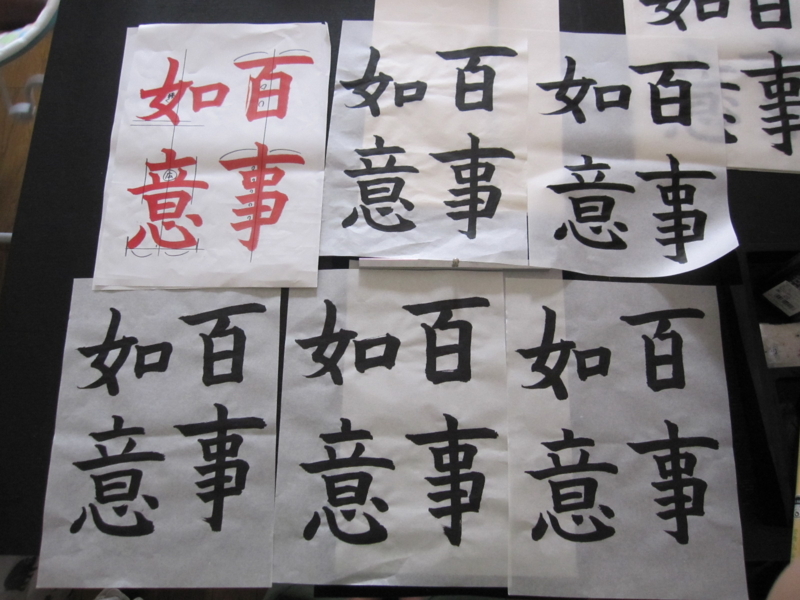 百事
如意
百事
如意
百事
如意
百事
如
百事
如意
百事
如意
百事
如意